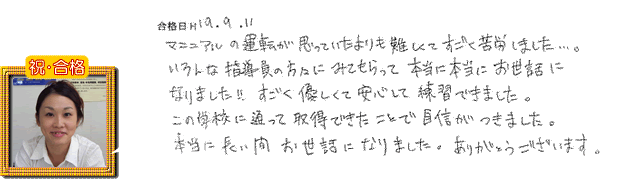 合格日 H19.9.11
マニュアルの運転が思っていたよりも難しくてすごく苦労しました…。
いろんな指導員の方々にみてもらって本当に本当にお世話に
なりました!! すごく優しくて安心して練習できました。
この学校に通って取得できたことで自信がつきました。
本当に長い間お世話になりました。ありがとうございます。
祝・合格